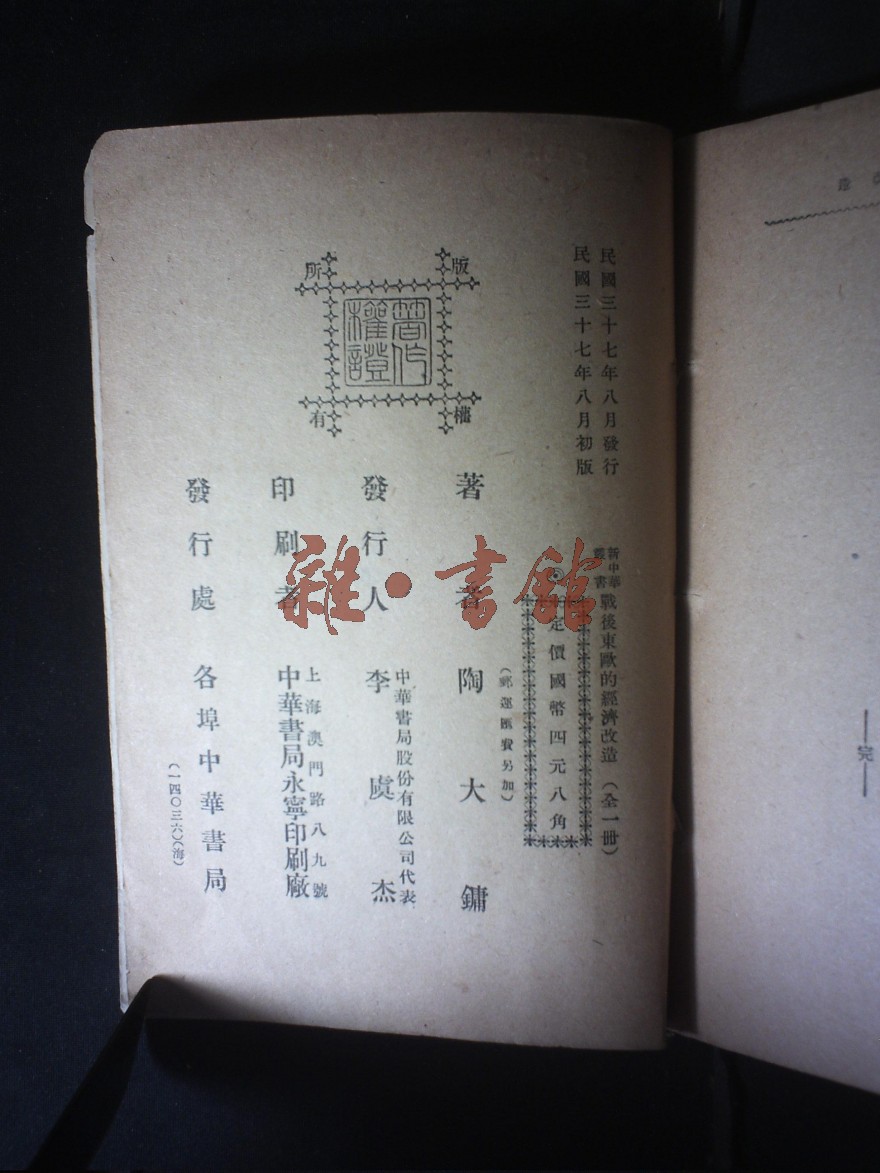 民國三十七年八月發行
民國三十七年八月初版
新中華
叢書
戰後東歐的經濟改造（全一冊）
定價國幣四元八角
（郵運匯費另加）
版權所有
著作權證
著者 陶大鏞
發行人
中華書局股份有限公司代表
李虞杰
印刷者
上海澳門路八九號
中華書局永寧印刷廠
發行處 各埠中華書局
（一四〇三六）（海）
雜·書館
——完——